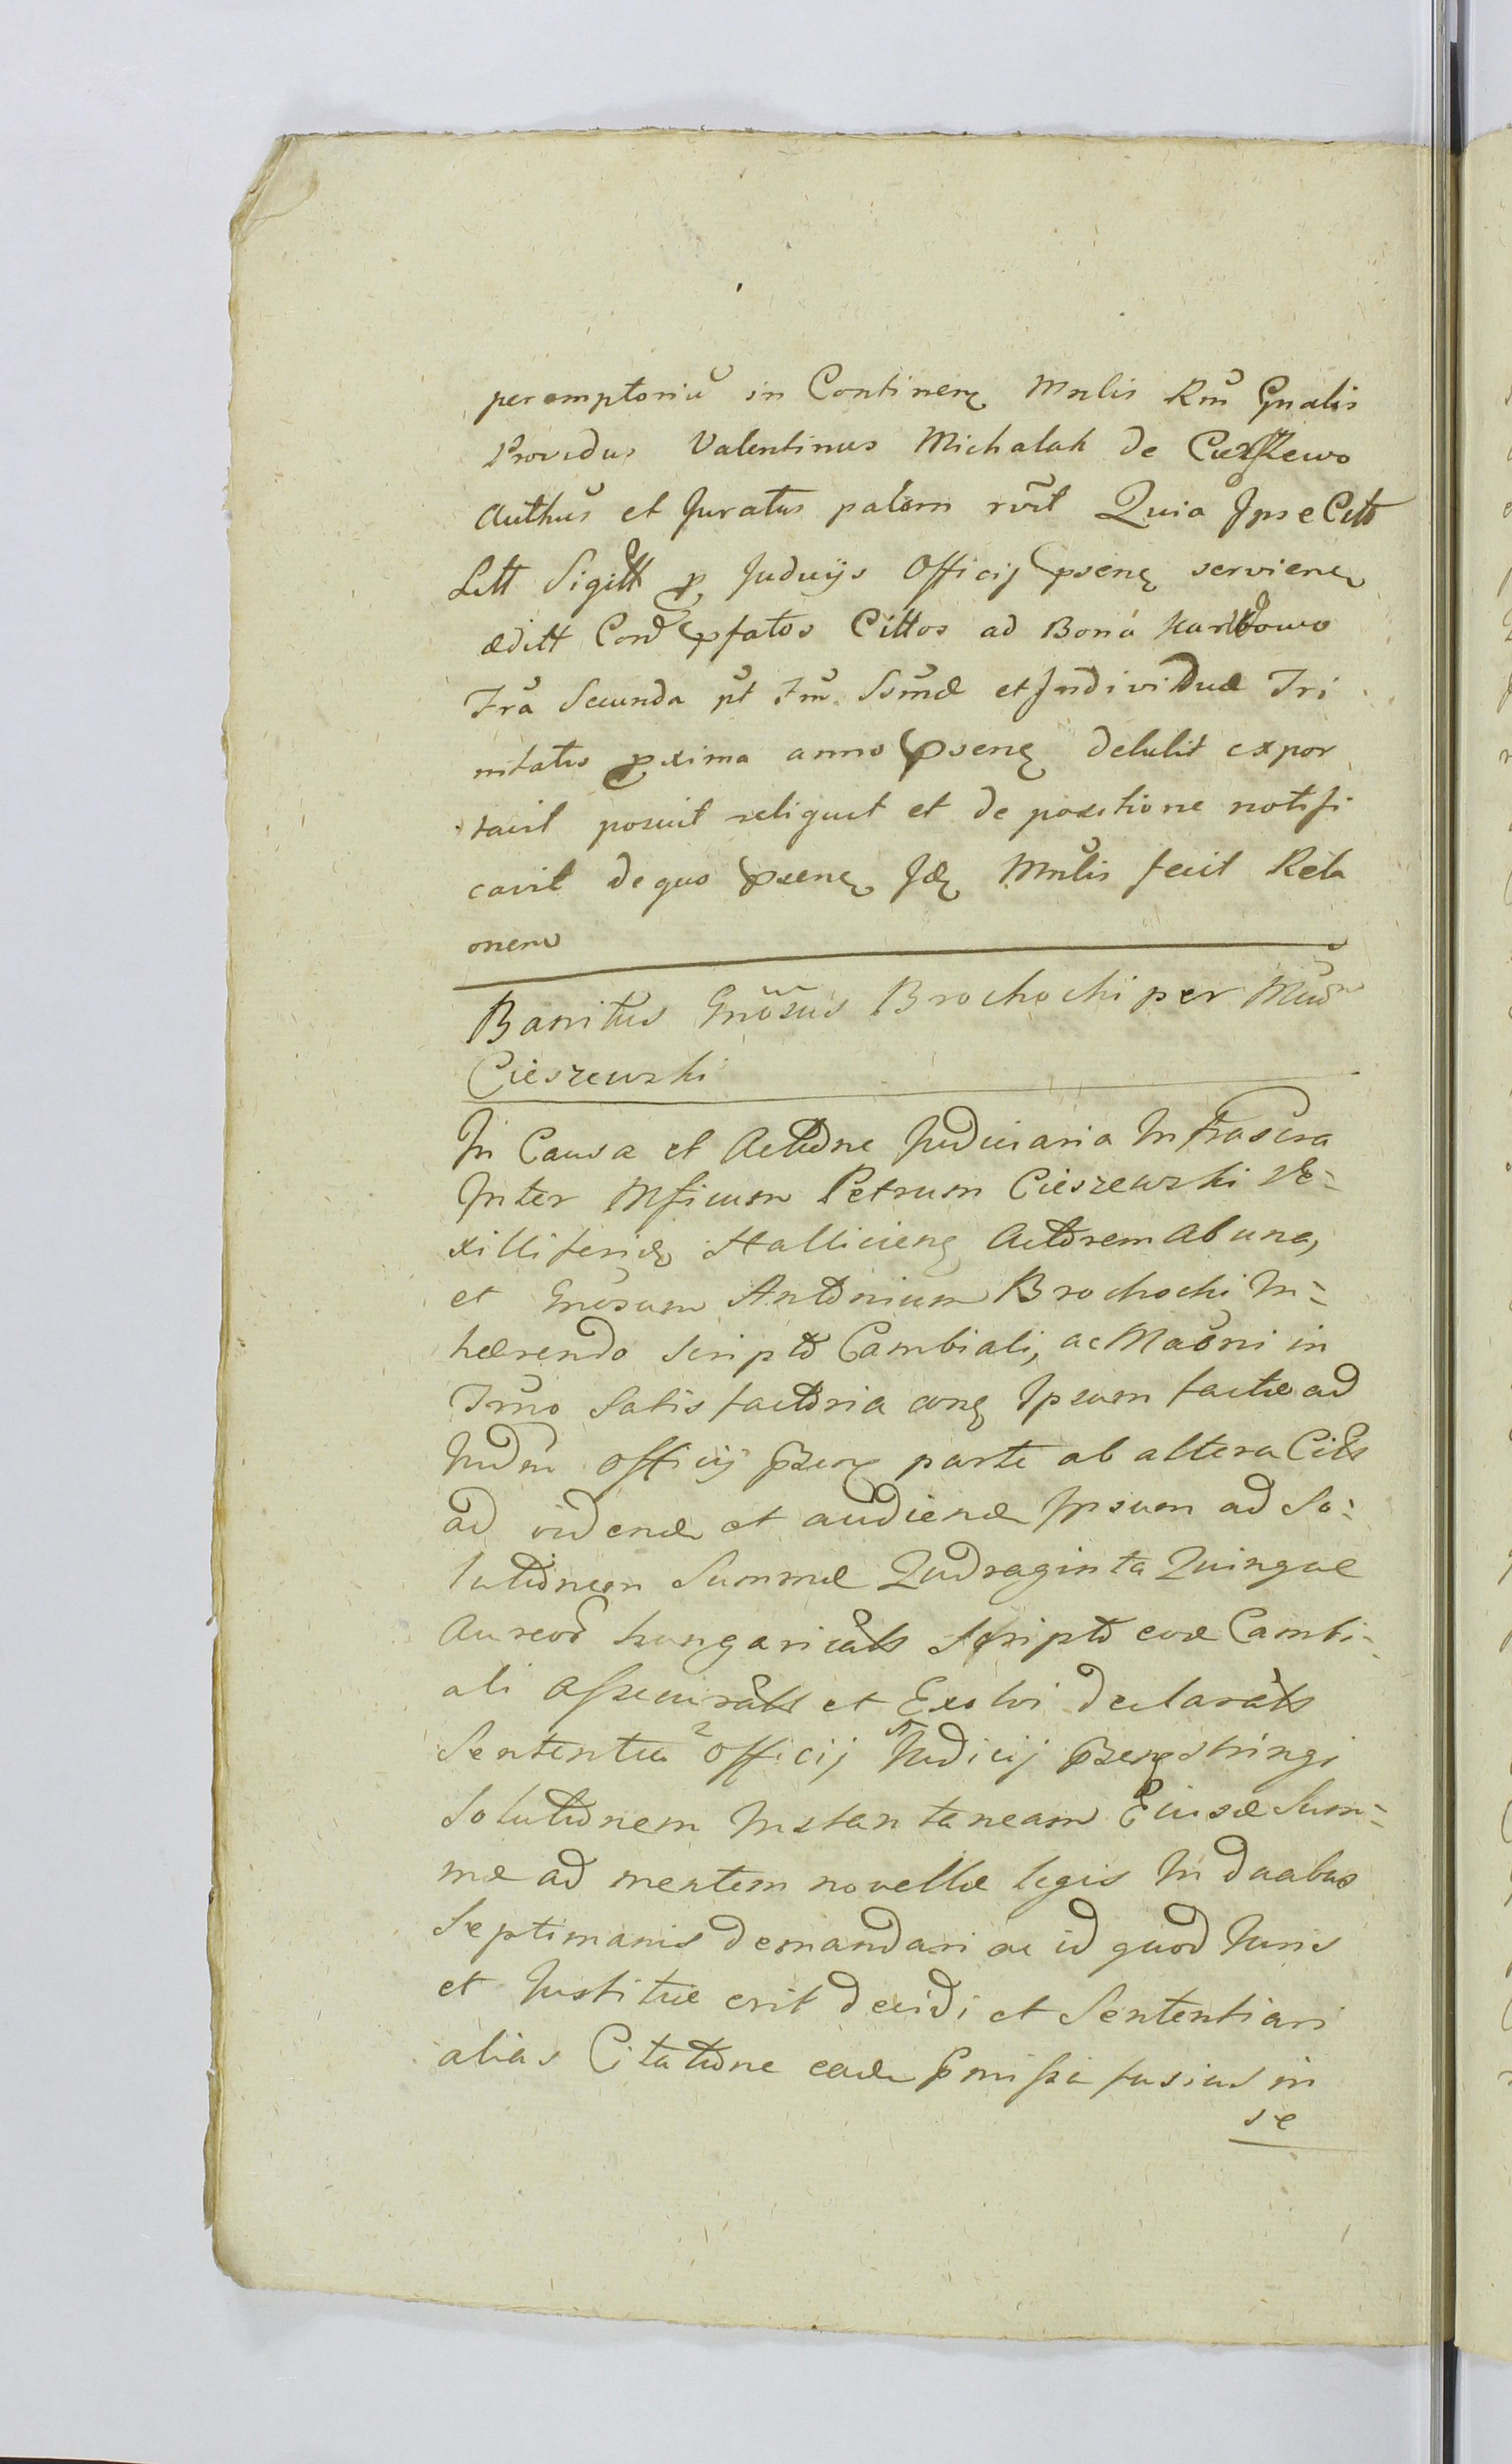 peremptoriũ in Contineñ Mnlis Rm̃ Gnalis
Providus Valentinus Michalak de
Authũs et Juratus palam rõt Quia Ipse Citt
Litt Sigitt p Judiciis Officij pseñ servieñ
æditt Cord pfatos Cittos ad Bona
Frã Secunda pt Fm̃ Ssmæ et Individuæ Tri
nitatis pxima anno pseñ detulit expor
tavit posuit reliquit et de positione notifi
cavit de quo pseñ Id Mnlis fecit Rela
onem
Banitus Gnõsus Brochocki per Mcum
Cieszewski
In Causa et Actione Judiciaria Infrascra
Inter Mficum Petrum Cieszewski Ve=
xilliferid Halliciens Actorem ab una,
et Gnosum Antonium Brochocki In=
hærendo Scripto Cambiali, ac Maõni in
Trno Satisfactoria coñ Ipsum factæ ad
Judm officij pseñ parte ab altera Citt
ad videnđ et audienđ Ipsum ad So=
lutionem Summæ Qudraginta Quinque
Aureor hungaricalt Scripto eod Cambi=
ali assecuratt et Exolvi declaratt
Sententia 2 officij 1 Judicij pseñ stringi
Solutionem Instantaneam Eiusd Sum=
mæ ad mentem novellæ legis In duabus
Septimanis demandari ac id quod Juris
et Justitiæ erit decidi et Sententiari
alias Citatione eadem pmissa fusius in
se